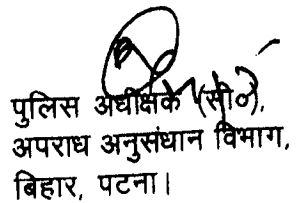 पुलिस अधीक्षक (सी०),
अपराध अनुसंधान विभाग,
बिहार, पटना।